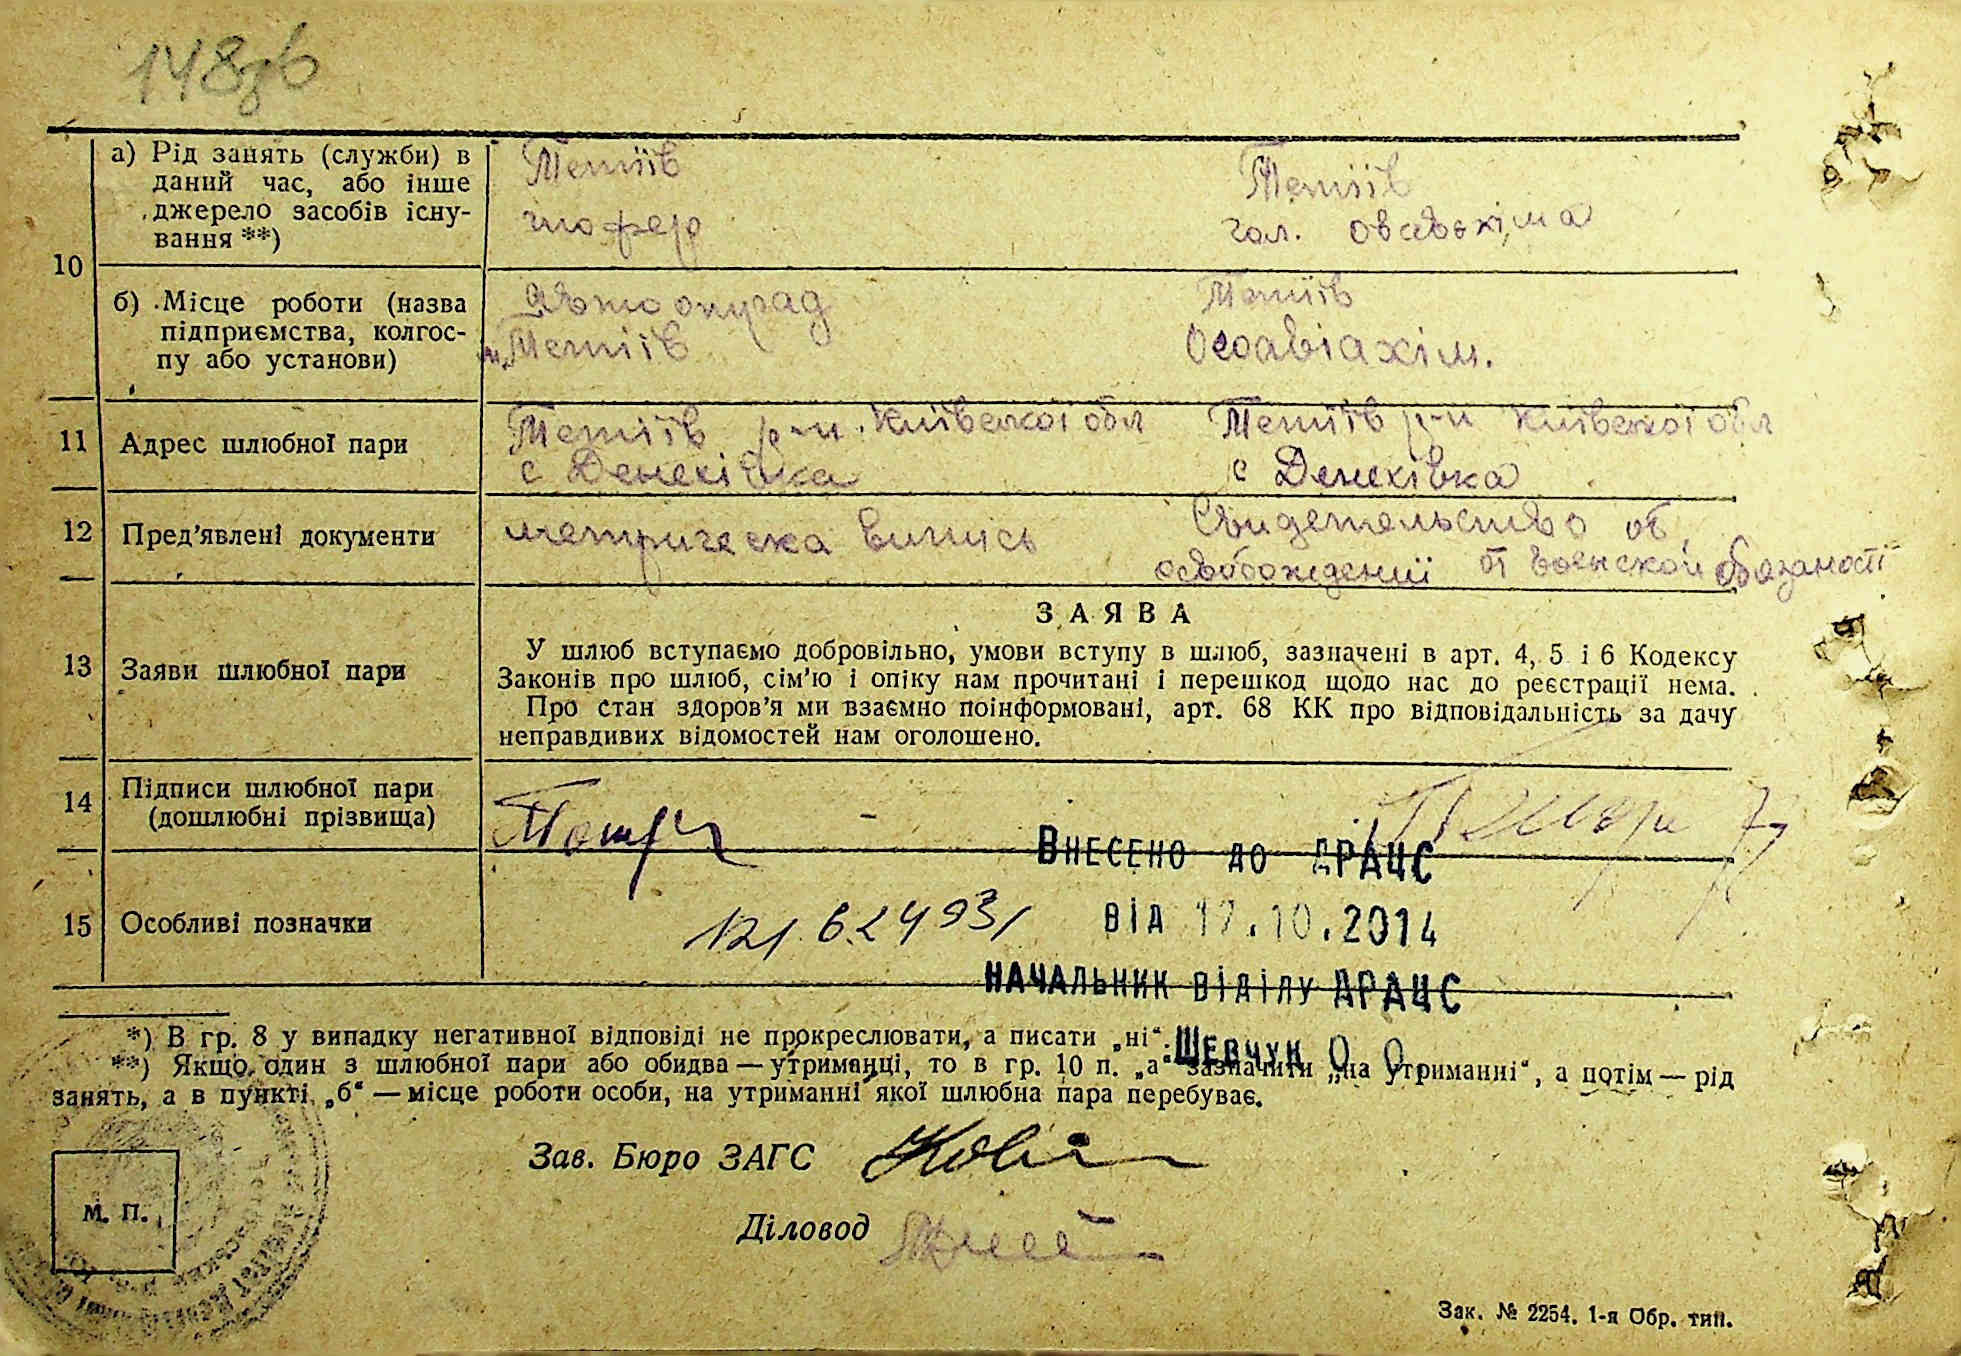 148зв
10
а) Рід занять (служби) в
даний час, або інше
джерело засобів існу-
вання **)
Тетіїв
шофер
Тетіїв
гол. овсавьхіма
б) Місце роботи (назва
підприємства, колгос-
пу або установи)
Тетіїв
Тетіїв
Осоавіахім.
11 Адрес шлюбної пари
Тетіїв р-н. Київської обл
с Денехівка
Тетіїв р-н Київської обл
с Денехівка
12 Пред'явлені документи
метрическа випись
Свидетельство об
освобождении от воєнской обязаності
13 Заяви шлюбної пари
ЗАЯВА
У шлюб вступаємо добровільно, умови вступу в шлюб, зазначені в арт. 4, 5 і 6 Кодексу
Законів про шлюб, сім'ю і опіку нам прочитані і перешкод щодо нас до реєстрації нема.
Про стан здоров'я ми взаємно поінформовані, арт. 68 КК про відповідальність за дачу
неправдивих відомостей нам оголошено.
14 Підписи шлюбної пари
(дошлюбні прізвища)
ВНЕСЕНО ДО ДРАЦС
15 Особливі позначки
ВІД 17.10.2014
НАЧАЛЬНИК ВІДІЛУ ДРАЦС
ШЕВЧУК О О
*) В гр. 8 у випадку негативної відповіді не прокреслювати, а писати „ні“.
**) Якщо один з шлюбної пари або обидва — утриманці, то в гр. 10 п. „а“ зазначити „на утриманні“, а потім — рід
занять, а в пункті „б“ — місце роботи особи, на утриманні якої шлюбна пара перебуває.
Зав. Бюро ЗАГС
М. П.
Діловод
Зак. № 2254. 1-я Обр. тип.